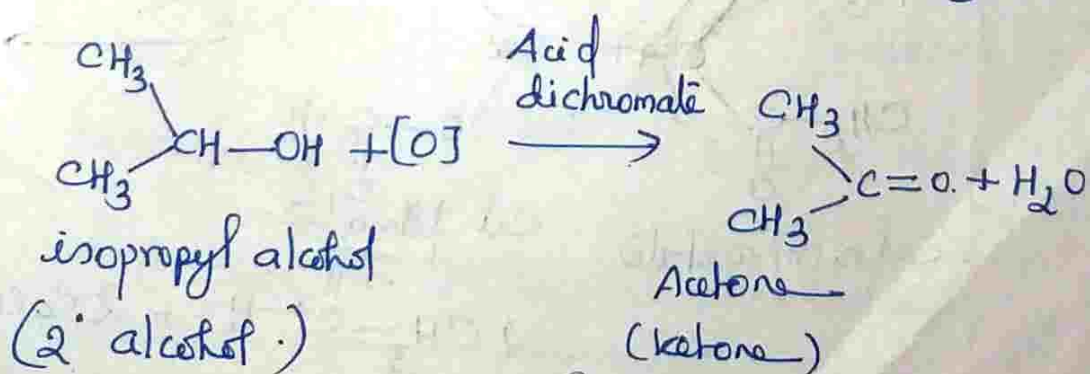 CH3
CH3
CH—OH + [O]
Acid
dichromate
→
CH3
CH3
C=O. + H2O
isopropyl alcohol
(2° alcohol.)
Acetone
(ketone)